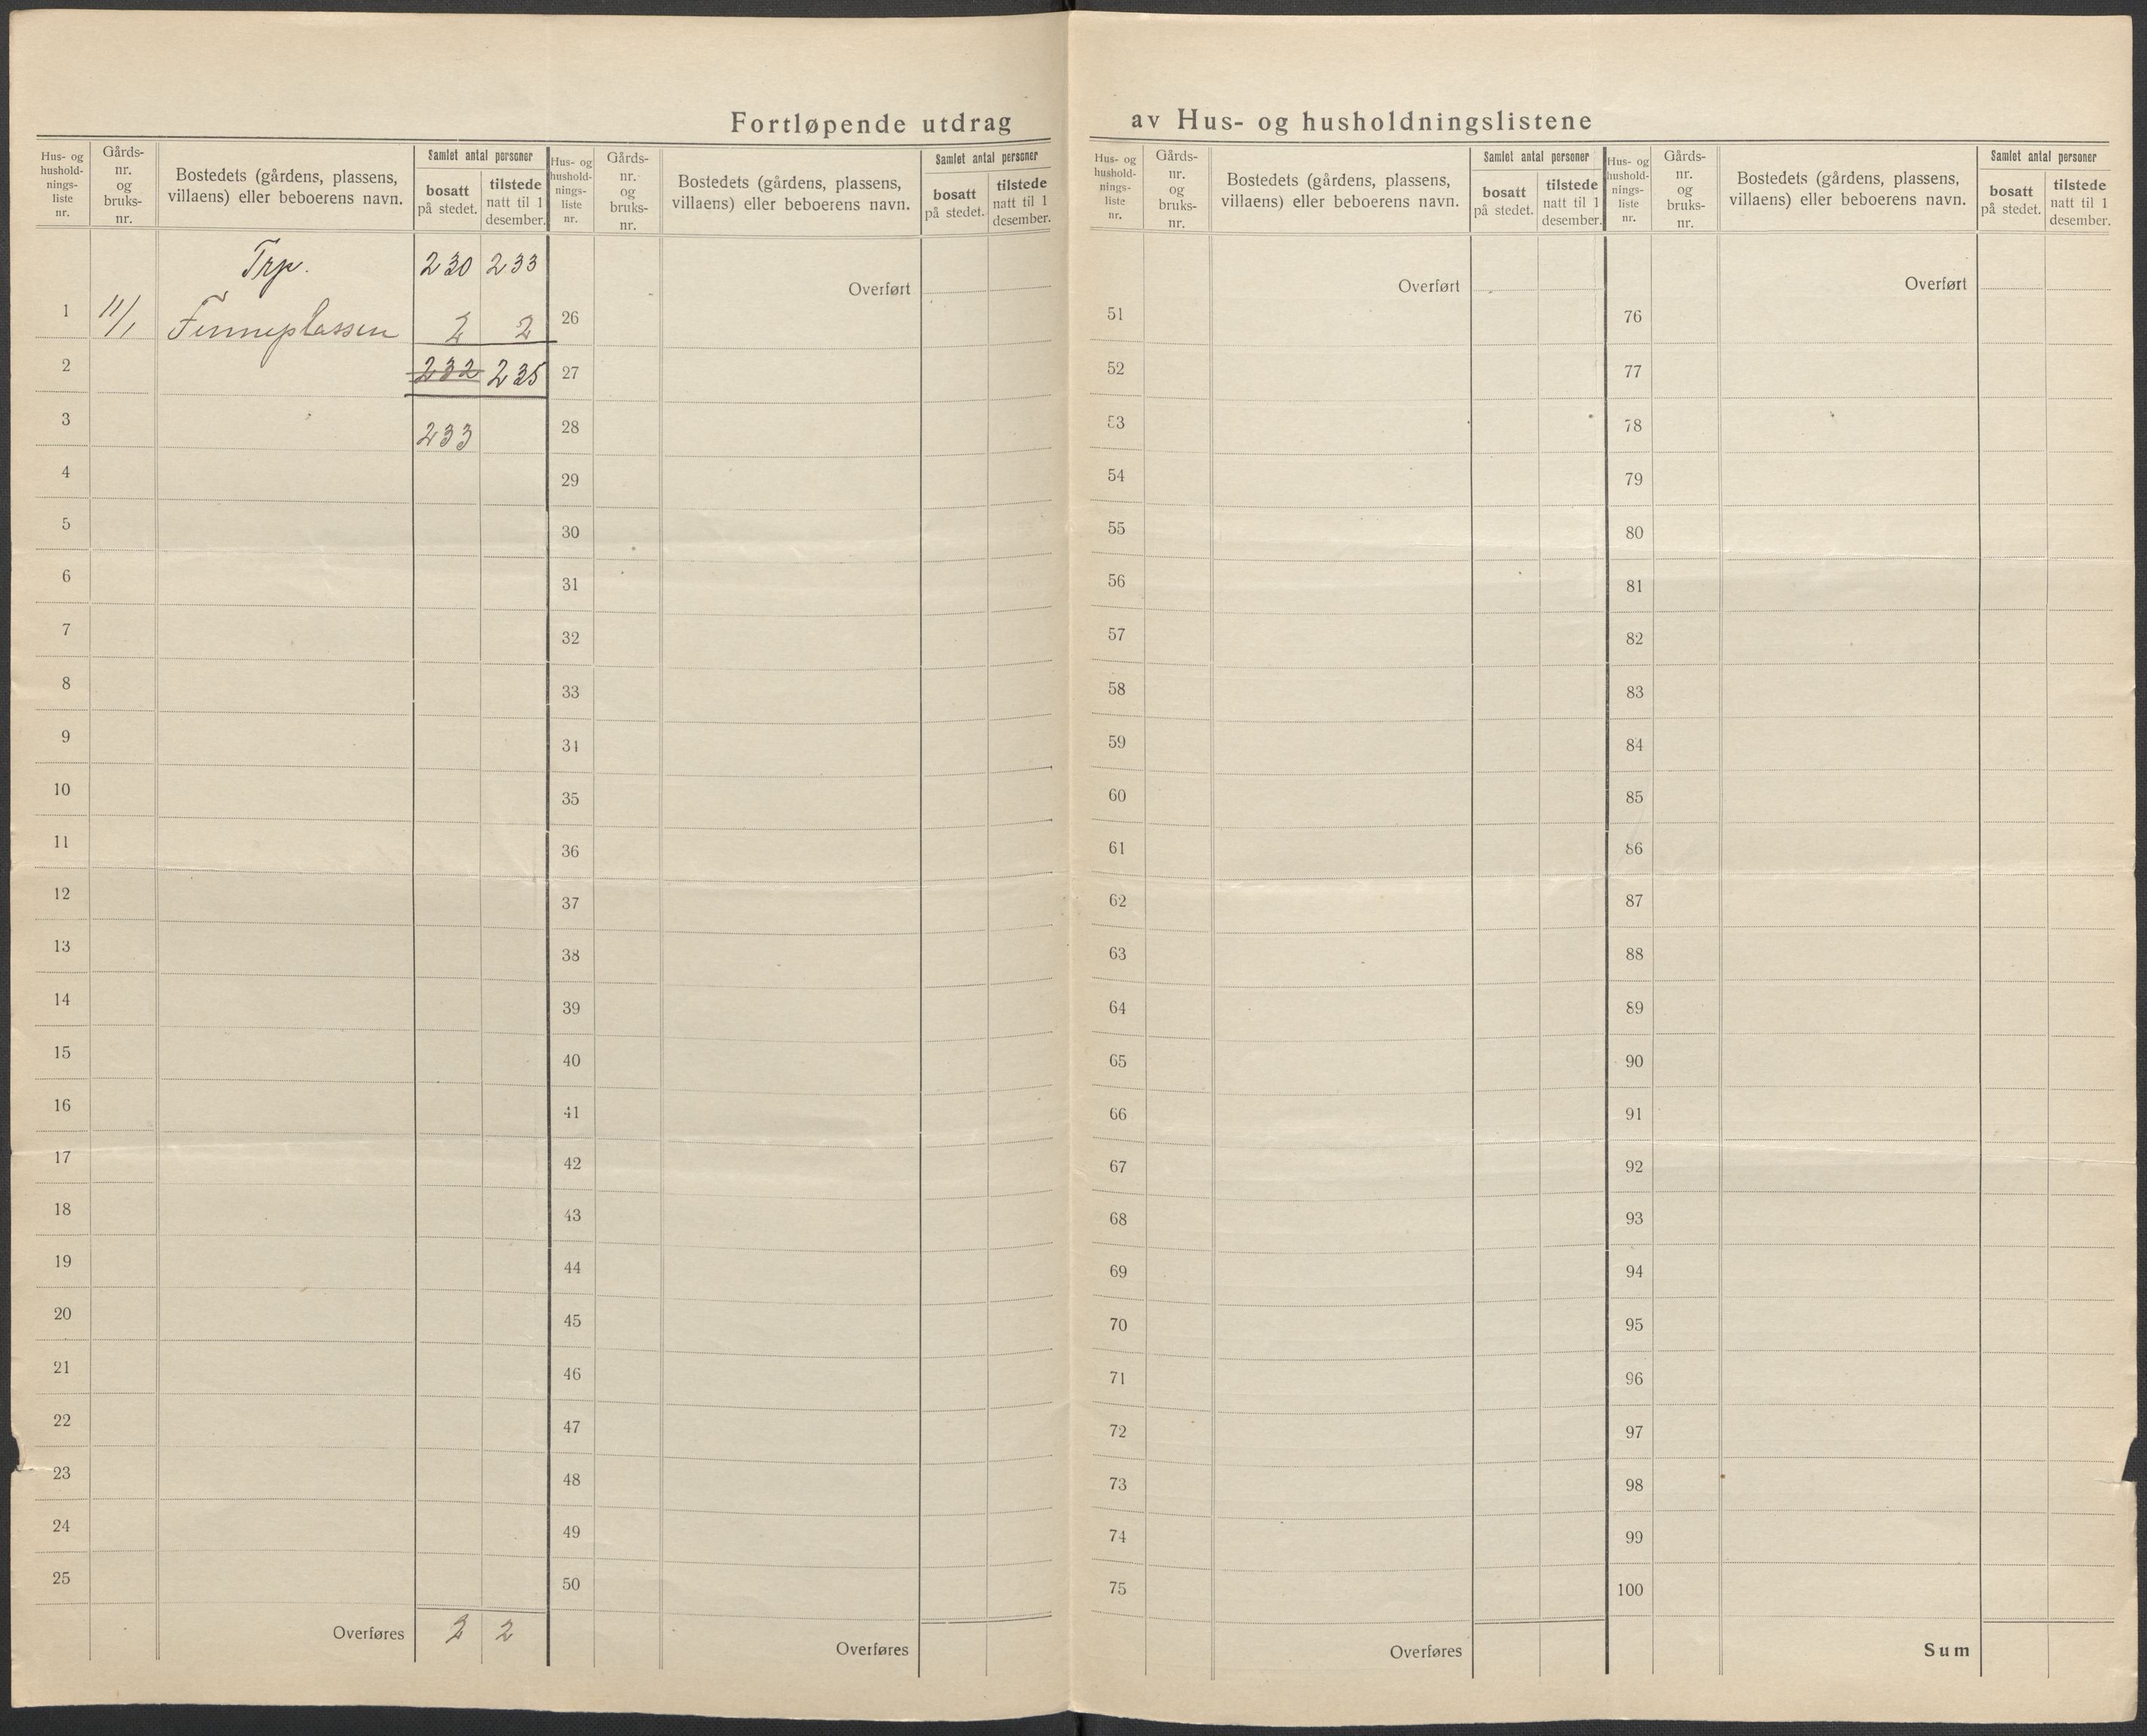 Fortløpende utdrag av Hus- og husholdningslistene
Hus- og hushold-nings-liste nr.
Gårds-nr. og bruks-nr.
Bostedets (gårdens, plassens, villaens) eller beboerens navn.
Samlet antal personer
bosatt på stedet.
tilstede natt til 1 desember.
Hus- og hushold-nings-liste nr.
Gårds-nr. og bruks-nr.
Bostedets (gårdens, plassens, villaens) eller beboerens navn.
Samlet antal personer
bosatt på stedet.
tilstede natt til 1 desember.
Hus- og hushold-nings-liste nr.
Gårds-nr. og bruks-nr.
Bostedets (gårdens, plassens, villaens) eller beboerens navn.
Samlet antal personer
bosatt på stedet.
tilstede natt til 1 desember.
Hus- og hushold-nings-liste nr.
Gårds-nr. og bruks-nr.
Bostedets (gårdens, plassens, villaens) eller beboerens navn.
Samlet antal personer
bosatt på stedet.
tilstede natt til 1 desember.
Trp. 230 233
1 11/1 Finneplassen 2 2
2 232 235
3 233
4
5
6
7
8
9
10
11
12
13
14
15
16
17
18
19
20
21
22
23
24
25
Overføres 2 2
Overført
26
27
28
29
30
31
32
33
34
35
36
37
38
39
40
41
42
43
44
45
46
47
48
49
50
Overføres
Overført
51
52
53
54
55
56
57
58
59
60
61
62
63
64
65
66
67
68
69
70
71
72
73
74
75
Overføres
Overført
76
77
78
79
80
81
82
83
84
85
86
87
88
89
90
91
92
93
94
95
96
97
98
99
100
Sum